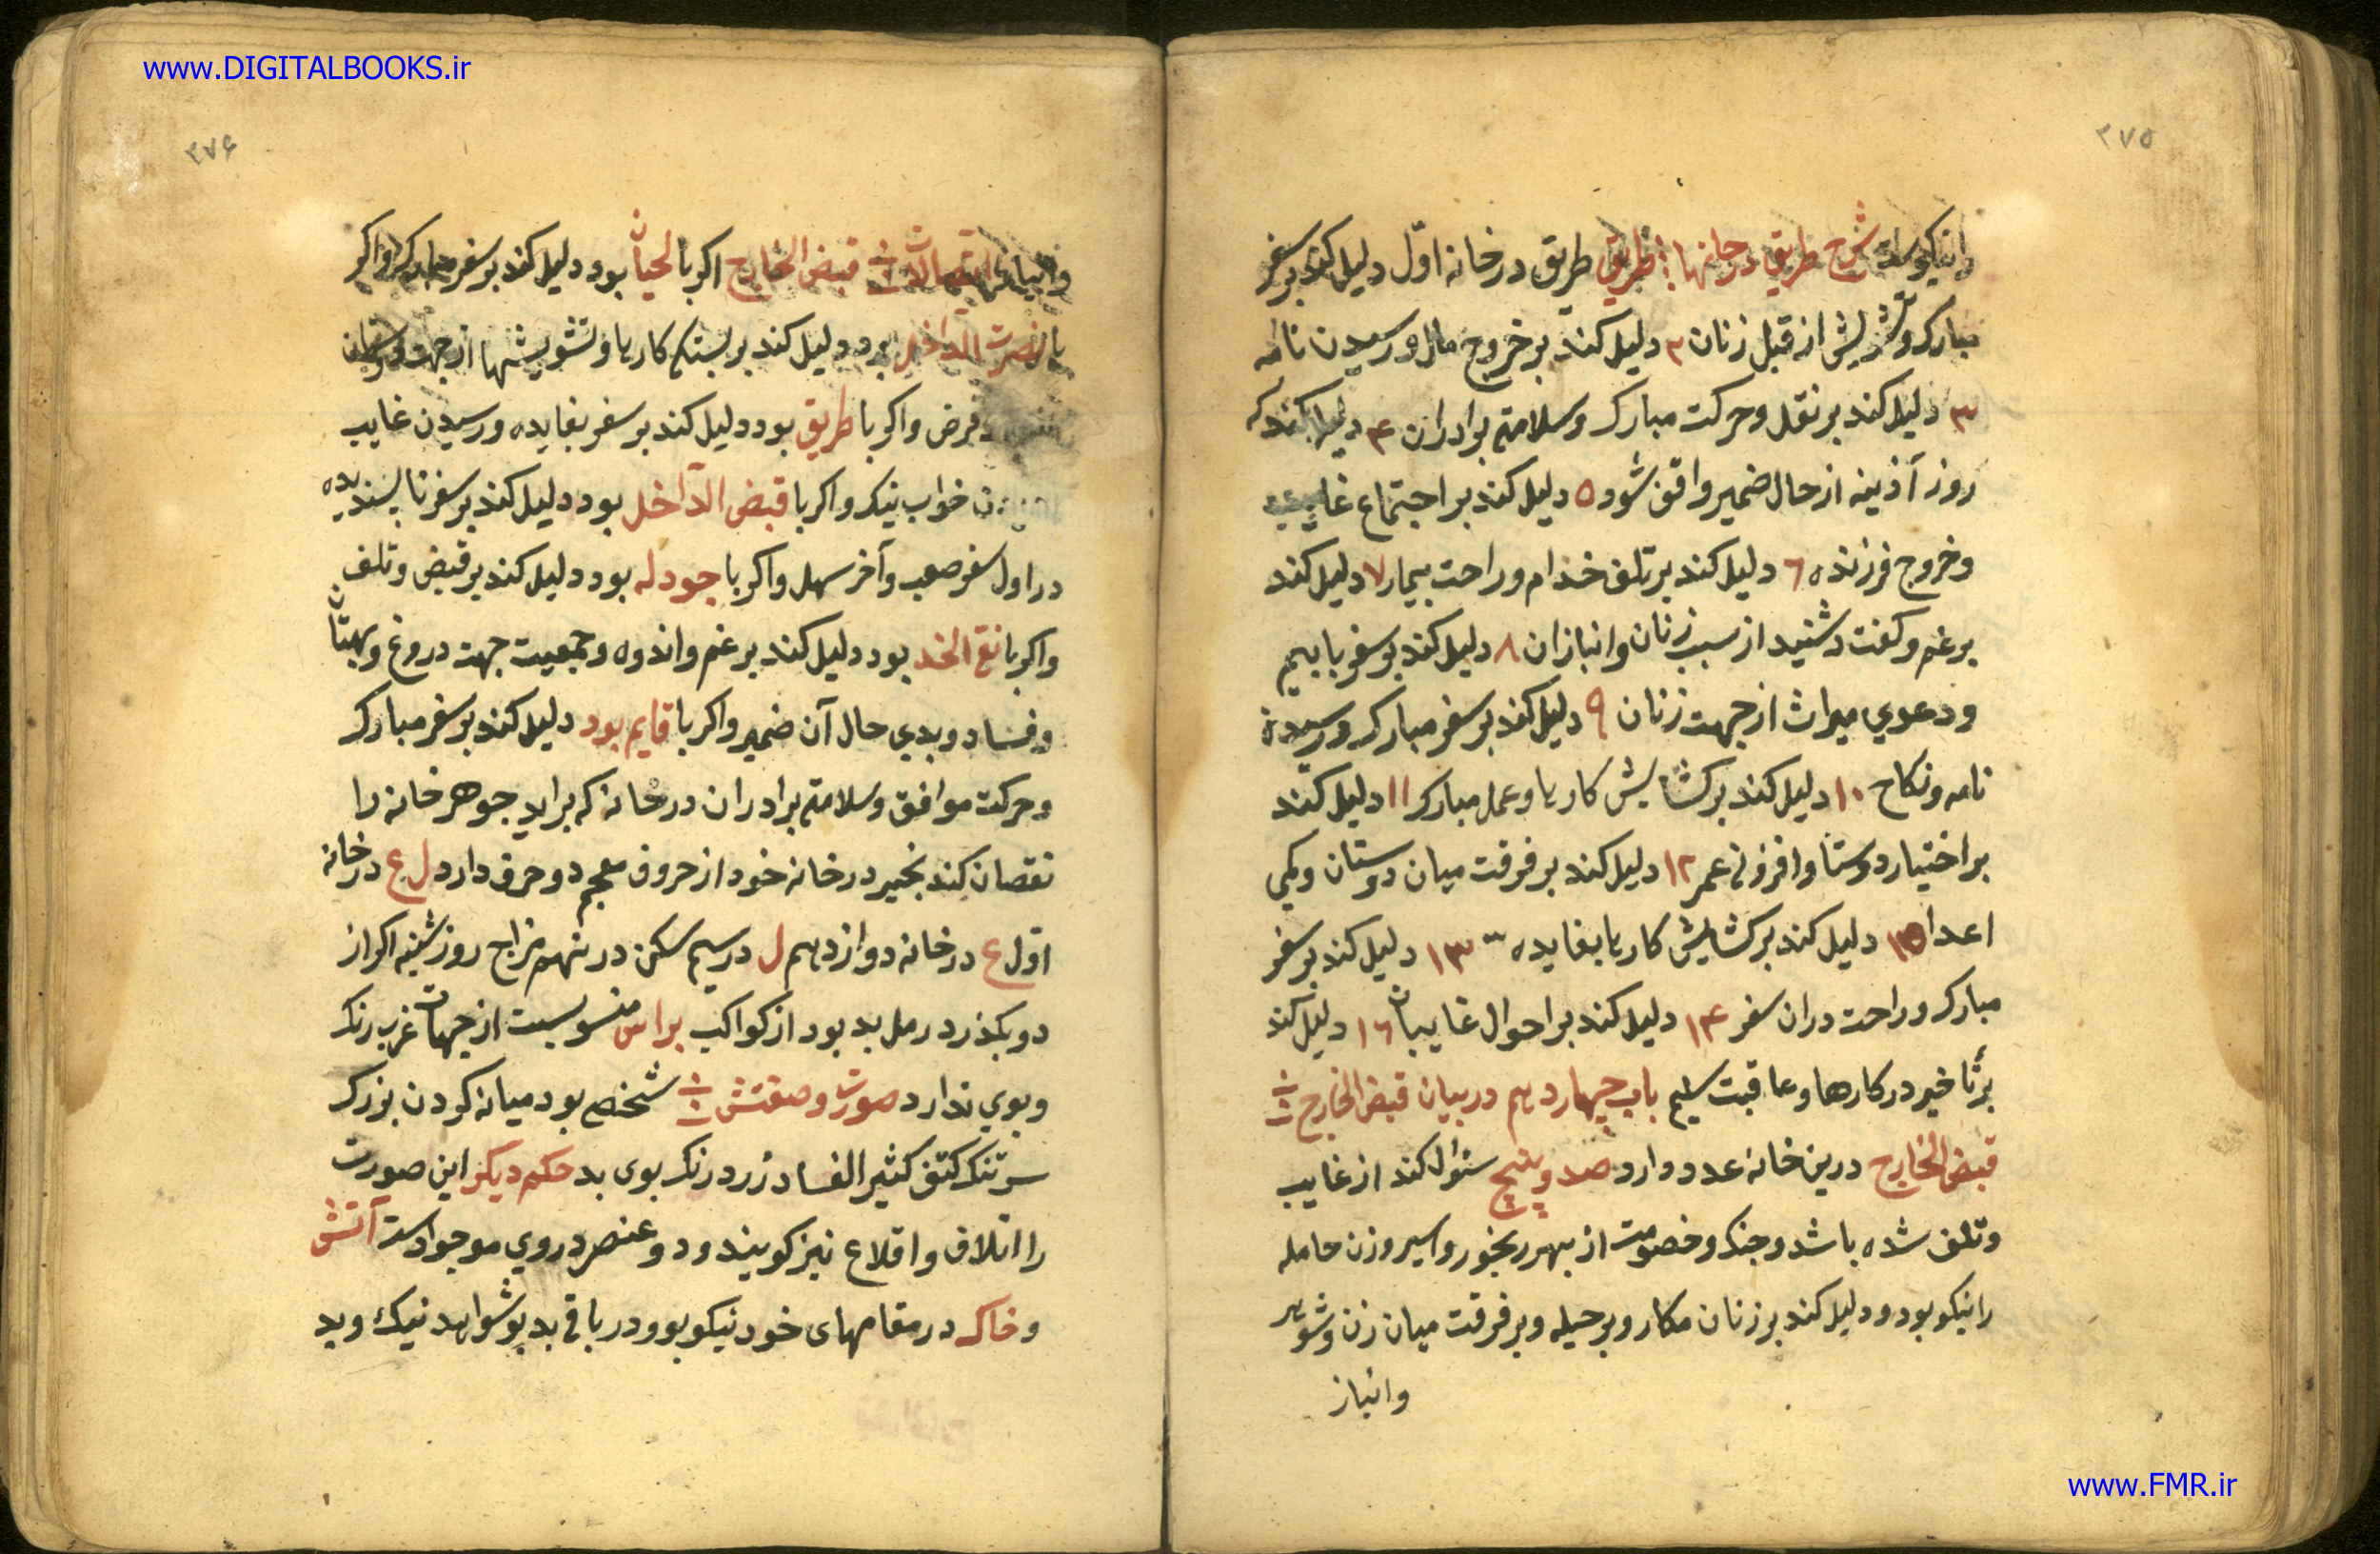 www.DIGITALBOOKS.ir
۳۷۵
رانیکوست شرح طریق درخانها طریق طریق درخانه اوّل دلیل کند بر سفر
مبارک و تشویش از قبل زنان ۲ دلیل کند بر خروج مال و رسیدن نامه
۳ دلیل کند بر نقل و حرکت مبارک و سلامتی برادران ۴ دلیل کند که
روز آذینه از حال ضمیر واقف شود ۵ دلیل کند بر اجتماع غایب
و خروج فرزنده ٦ دلیل کند بر تلف خدام و راحت بیمار ٧ دلیل کند
بر غم و کفت و شنید از سبب زنان و انبازان ٨ دلیل کند بر سفر با بیم
و دعوي میراث از جهت زنان ٩ دلیل کند بر سفر مبارک و رسیدن
نامه و نکاح ١٠ دلیل کند بر کشایش کارها و عمل مبارک ١١ دلیل کند
بر اختیار دوستا و افزونی عمر ١٢ دلیل کند بر فرقت میان دوستان و یکی
اعدا ١٥ دلیل کند بر کشایش کارها بفایده ١٣ دلیل کند بر سفر
مبارک و راحت دران سفر ١۴ دلیل کند بر احوال غایبان ١٦ دلیل کند
بر تأخیر در کارها و عاقبت سلیم باب چهاردهم در بیان قبض الخارج
قبض الخارج درین خانه عدد دارد صد و پنج سئوال کند از غایب
و تلف شده باشد و جنک و خصومت از بهر رنجور و اسیر و زن حامله
را نیکو بود و دلیل کند بر زنان مکار و بر حیله و بر فرقت میان زن و شوهر
و انباز
۳۷۶
اتصالات قبض الخارج اکر با لحیان بود دلیل کند بر سفر مبارک و اکر
با نصرت الداخل بود دلیل کند بر بستکی کارها و تشویشها از جهت دوستان
و قرض و اکر با طریق بود دلیل کند بر سفر بفایده و رسیدن غایب
خواب نیک و اکر با قبض الداخل بود دلیل کند بر سفر ناپسندیده
در اول سفر صعب و آخر سهل و اکر با جودله بود دلیل کند بر قبض و تلف
و اکر با نقی الخد بود دلیل کند بر غم و اندوه و جمعیت جهت دروغ و بهتان
و فساد و بدی حال آن ضمیر و اکر با قایم بود دلیل کند بر سفر مبارک
و حرکت موافق و سلامتی برادران در خانه که براید جوهر خانه را
نقصان کند بخیر در خانه خود از حروف معجم دو حرف دارد ل ع در خانه
اوّل ع در خانه دوازدهم ل در سیم سکن در نهم مزاج روز شنبه اکر از
دو بکذرد رمل بد بود از کواکب براس منسوبست از جهات غرب رنک
و بوي ندارد صورت و صفتش شخصی بود میانه کردن بزرک
سر تنک کتف کثیر الفساد زرد رنک بوی بد حکم دیکر این صورت
را اتلاف و اقلاع نیز کویند و دو عنصر در وي موجود است آتش
و خاک در مقامهای خود نیکو بود و در باقی بد بود شواهد نیک و بد
www.FMR.ir